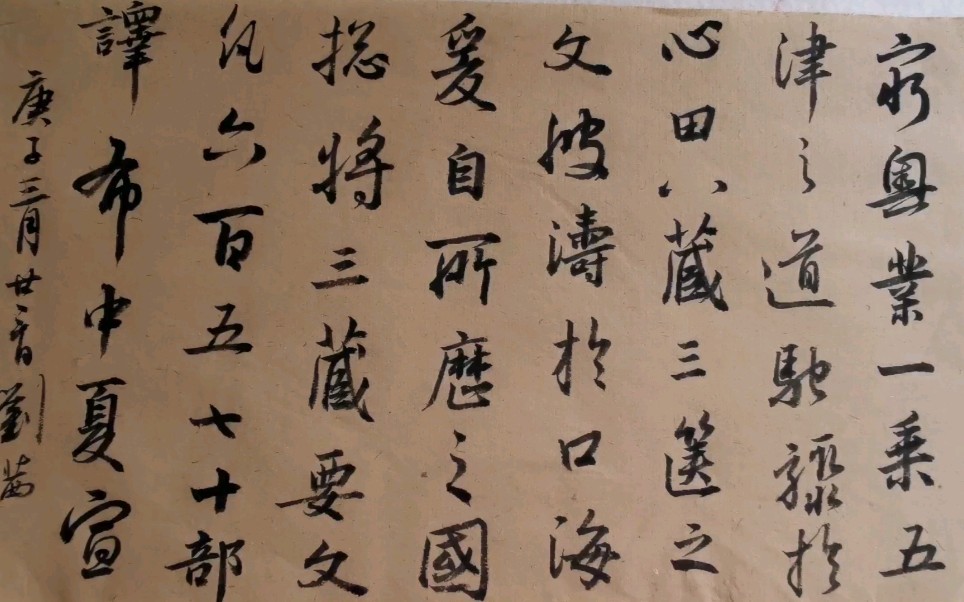 穷奥業一乗五
津之道馳驟於
心田八蔵三篋之
文波濤於口海
爰自所歷之國
摠將三蔵要文
凡六百五七十部
譯布中夏宣
庚子三月廿二日劉茜